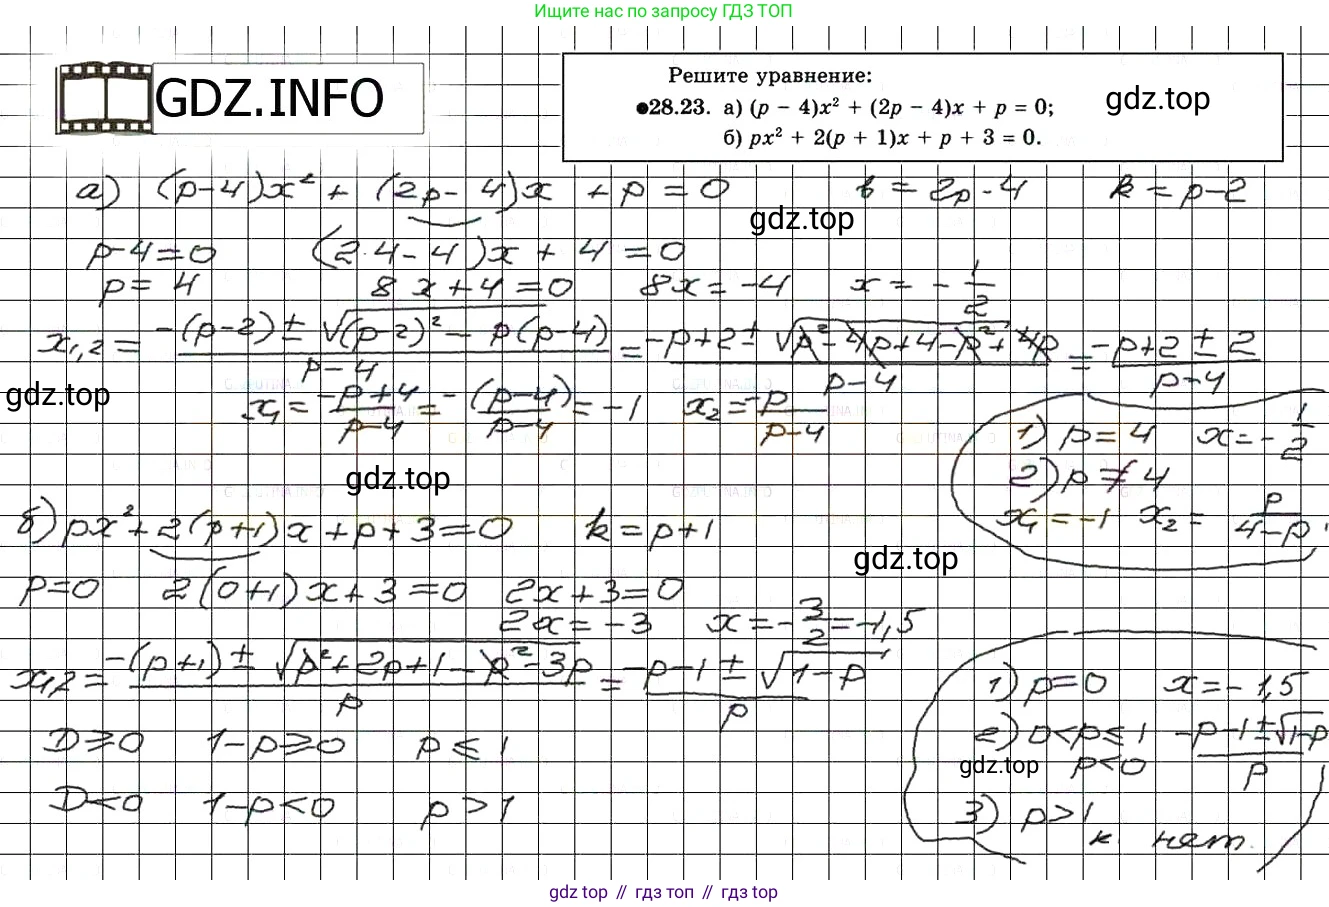 Ищите нас по запросу ГДЗ ТОП
GDZ.INFO
Решите уравнение:
●28.23. а) (p − 4)x² + (2p − 4)x + p = 0;
б) px² + 2(p + 1)x + p + 3 = 0.
gdz.top
а) (p−4)x² + (2p−4)x + p = 0 b = 2p−4 k = p−2
gdz.top
p−4=0 (2·4−4)x + 4 = 0
p = 4 8x+4=0 8x=−4 x = −1/2
x₁,₂ = (−(p−2) ± √((p−2)² − p(p−4)))/(p−4) = (−p+2 ± √(p²−4p+4−p²+4p))/(p−4) = (−p+2 ± 2)/(p−4)
gdz.top
x₁ = (−p+4)/(p−4) = −(p−4)/(p−4) = −1 x₂ = −p/(p−4)
1) p = 4 x = −1/2
2) p ≠ 4
x₁ = −1 x₂ = p/(4−p)
gdz.top
б) px² + 2(p+1)x + p + 3 = 0 k = p+1
gdz.top
p=0 2(0+1)x + 3 = 0 2x+3=0
2x = −3 x = −3/2 = −1,5
x₁,₂ = (−(p+1) ± √(p²+2p+1−p²−3p))/p = (−p−1 ± √(1−p))/p
D ≥ 0 1−p ≥ 0 p ≤ 1
D < 0 1−p < 0 p > 1
1) p=0 x = −1,5
2) 0<p≤1 (−p−1±√(1−p))/p
p<0
gdz.top
3) p>1
к. нет.
gdz top // гдз топ // гдз top